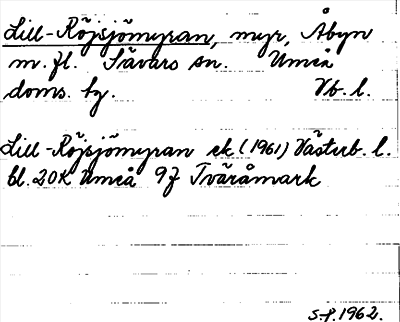 Lill-Röjsjömyran, myr, Åbyn
m.fl. Sävars sn. Umeå
doms. tg. Vb. l.
Lill-Röjsjömyran ek (1961) Västerb. l.
bl. 20K Umeå 9f Tväråmark
S-f. 1962.